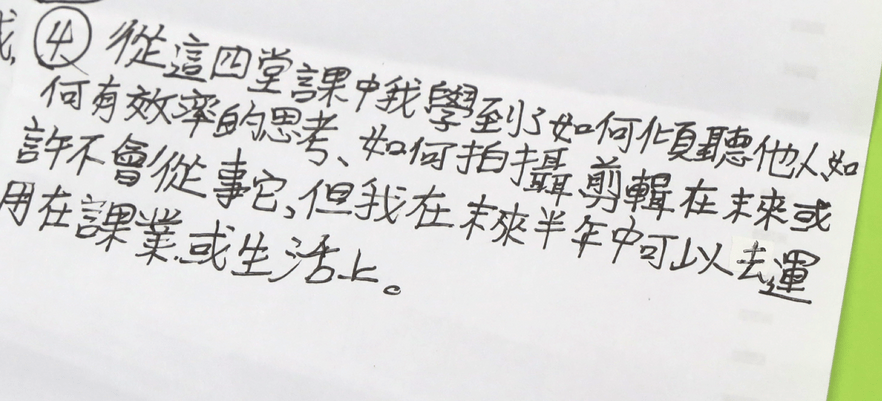 ④ 從這四堂課中我學到了如何傾聽他人、如
何有效率的思考、如何拍攝剪輯在未來或
許不會從事它,但我在未來半年中可以去運
用在課業或生活上。